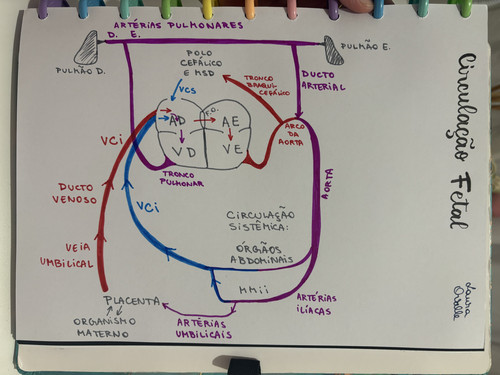 ARTÉRIAS PULMONARES
D. E.
PULMÃO D.
PULMÃO E.
POLO
CEFÁLICO
E MSD
VCS
TRONCO
BRAQUI
CEFÁLICO
DUCTO
ARTERIAL
AD
F.O.
AE
VD
VE
ARCO
DA
AORTA
VCi
TRONCO
PULMONAR
AORTA
DUCTO
VENOSO
VCi
CIRCULAÇÃO
SISTÊMICA:
ÓRGÃOS
ABDOMINAIS
VEIA
UMBILICAL
MMii
ARTÉRIAS
ILÍACAS
PLACENTA
ORGANISMO
MATERNO
ARTÉRIAS
UMBILICAIS
Circulação Fetal
Laura